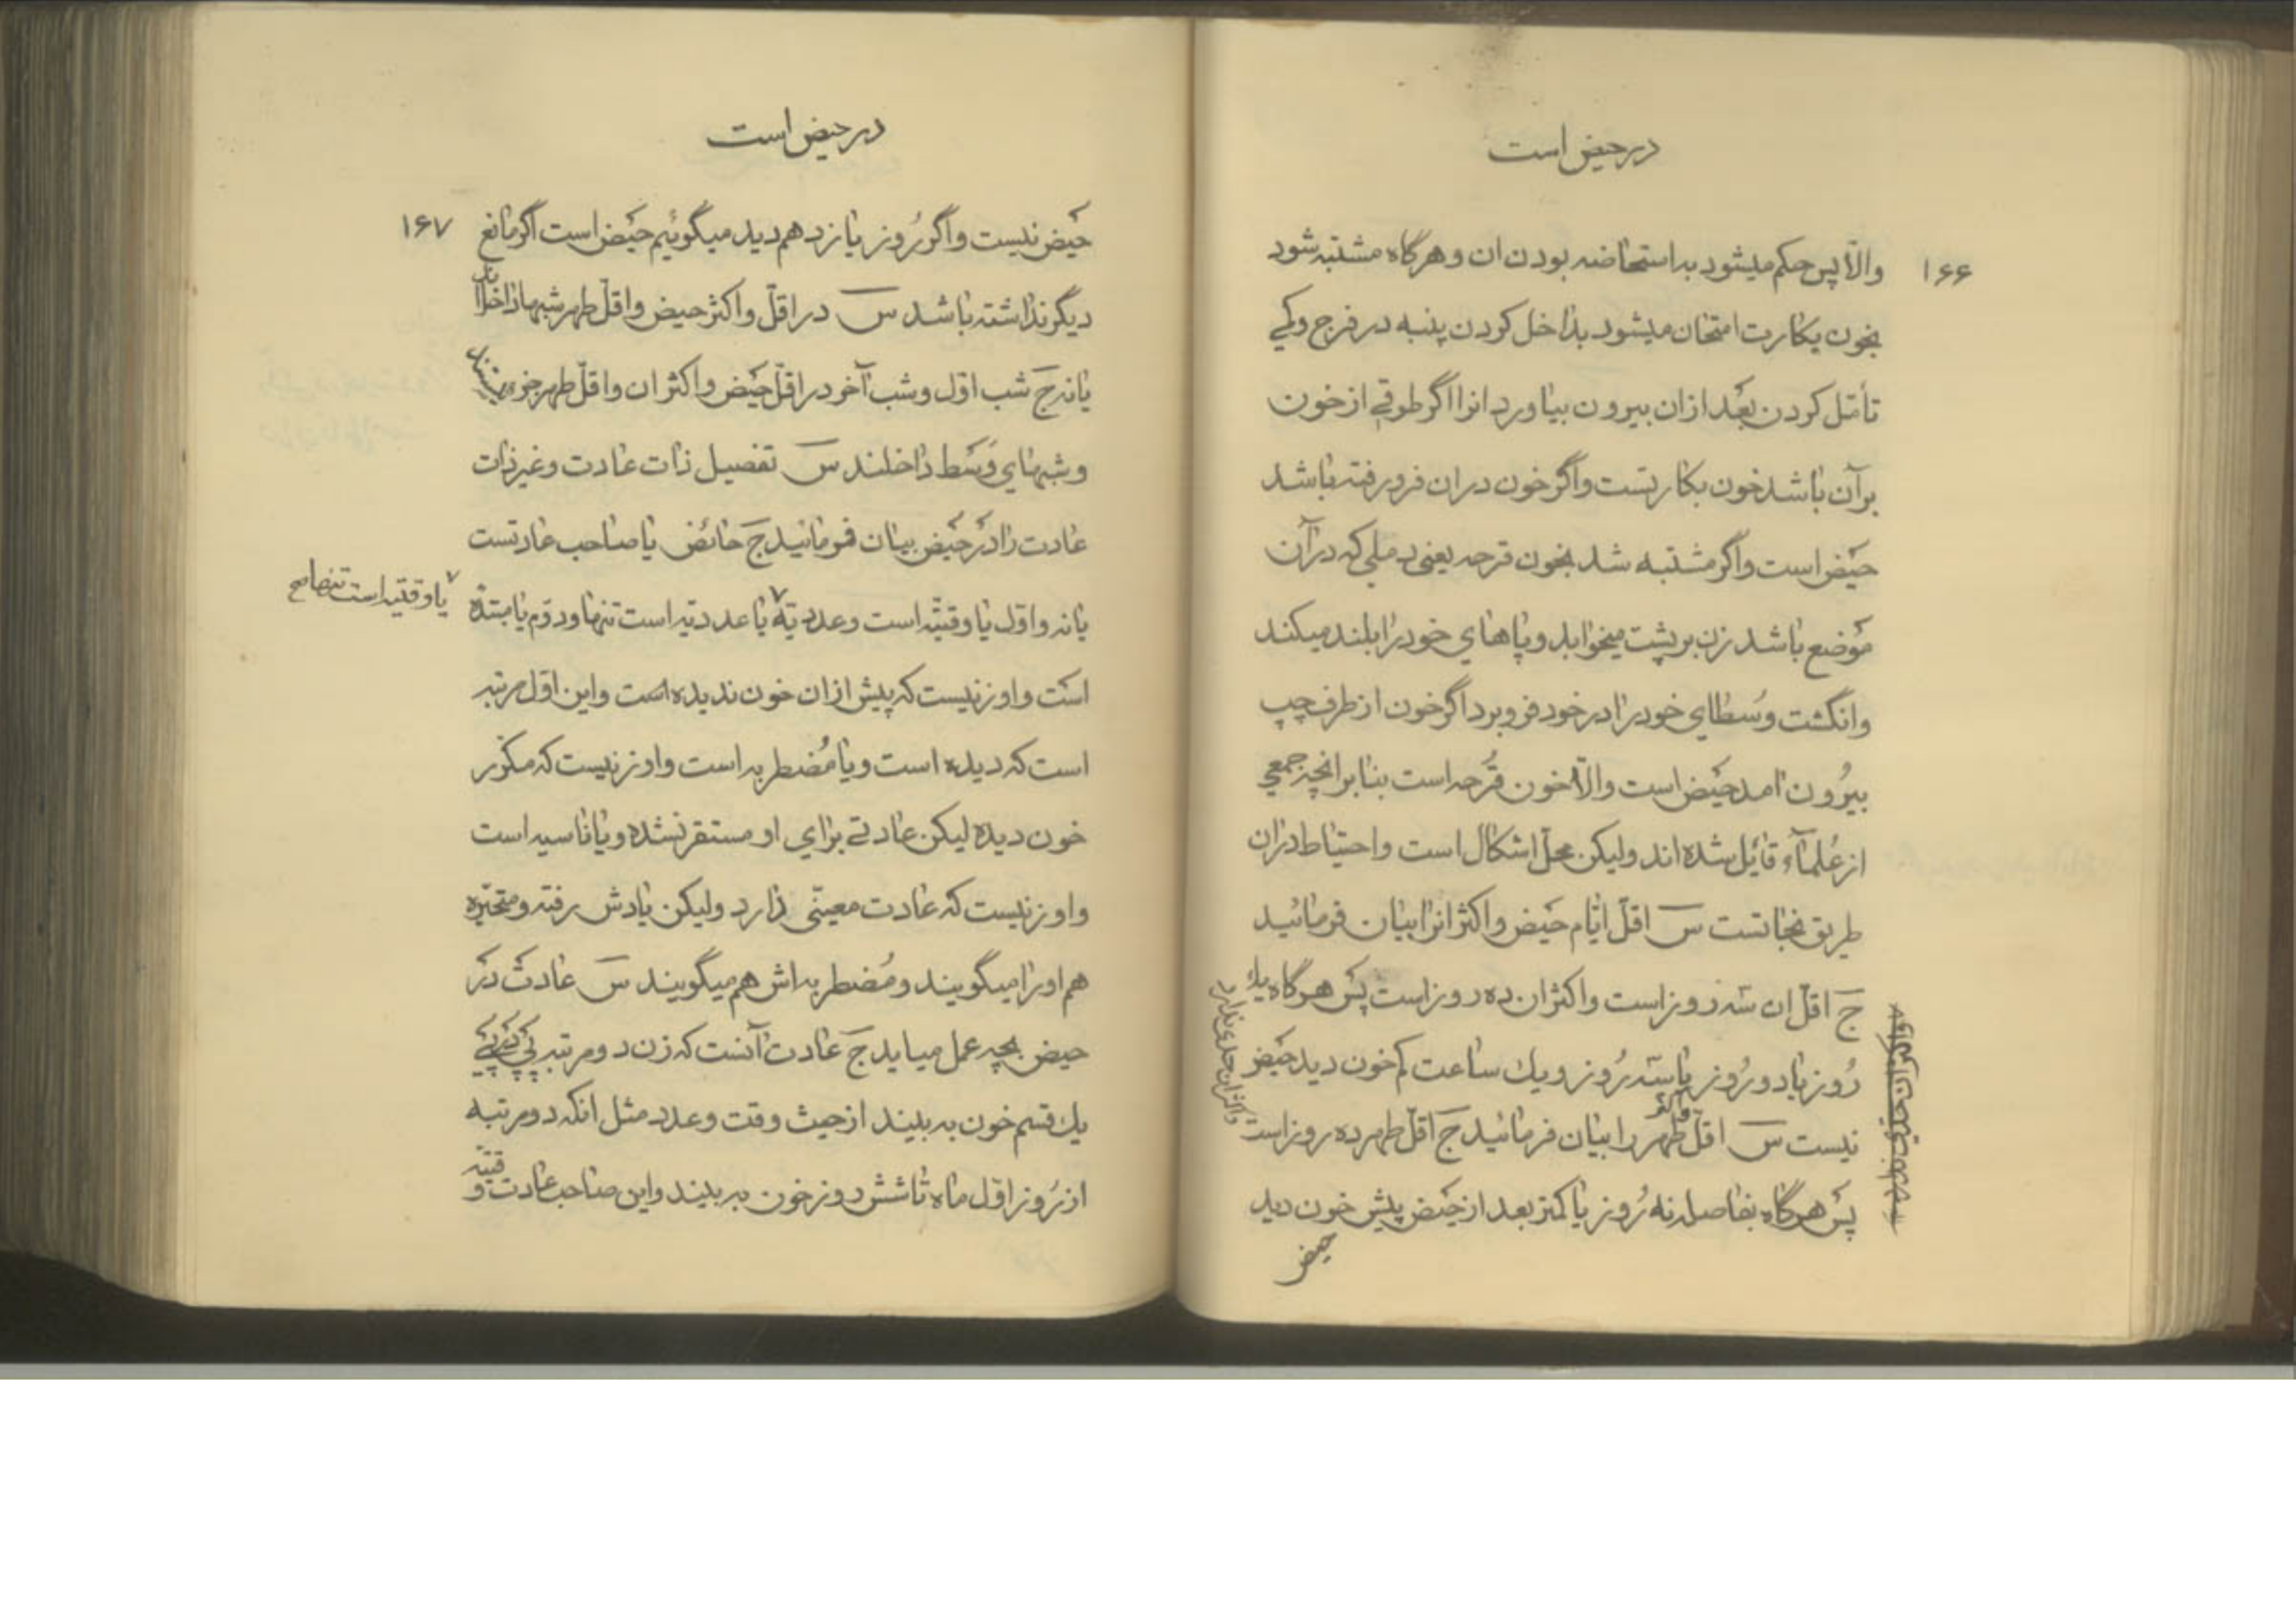 در حیض است
۱۶۶
والّا پس حکم میشود به استحاضه بودن ان و هرگاه مشتبه شود
بخون بکارت امتحان میشود بداخل کردن پنبه در فرج وکمی
تأمّل کردن بعد ازان بیرون بیاورد انرا اگر طوقی از خون
برآن باشد خون بکارتست واگر خون دران فرو رفته باشد
حیض است واگر مشتبه شد بخون قرحه یعنی دملی که درآن
موضع باشد زن بر پشت میخوابد و پاهای خود را بلند میکند
وانگشت وُسطای خود را در خود فرو برد اگر خون از طرف چپ
بیرُون امد حیض است والّا خون قُرحه است بنا بر انچه جمعی
از عُلمآء قائل شده اند ولیکن محلّ اشکال است و احتیاط دران
طریق نجاتست س اقلّ ایّام حیض و اکثر انرا بیان فرمائید
ج اقلّ ان سه روز است واکثر ان ده روز است پس هرگاه یك
رُوز یا دو رُوز یا سه رُوز و یك ساعت کم خون دید حیض
نیست س اقلّ طهر و اکثر را بیان فرمائید ج اقلّ طهر ده روز است
واکثران حدی ندارد
پس هرگاه بفاصله نه رُوز یا کمتر بعد از حیض پیش خون دید
حیض
در حیض است
۱۶۷
حیض نیست واگر رُوز یازدهم دید میگوئیم حیض است اگر مانع
دیگر نداشته باشد س در اقلّ واکثر حیض واقلّ طهر شبها داخل اند
یا نه ج شب اوّل و شب آخر در اقلّ حیض واکثر ان واقلّ طهر جزء نیستند
و شبهای وَسَط داخلند س تفصیل ذات عادت وغیر ذات
عادت را در حیض بیان فرمائید ج حائض یا صاحب عادتست
یا نه و اوّل یا وقتیّه است وعددیّه یا عددیّه است تنها ودوّم یا مبتدئه
یا وقتیّه است تنها صح
است و او زنیست که پیش ازان خون ندیده است واین اوّل مرتبه
است که دیده است و یا مُضطربه است واو زنیست که مکرّر
خون دیده لیکن عادتی برای او مستقر نشده و یا ناسیه است
واو زنیست که عادت معیّنی دارد ولیکن یادش رفته و متحیّره
هم اورا میگویند و مُضطربه اش هم میگویند س عادت در
حیض بچه عمل میاید ج عادت آنست که زن دو مرتبه پی در پی
یك قسم خون به بیند از حیث وقت وعدد مثل انکه دو مرتبه
از رُوز اوّل ماه تا شش روز خون به بیند واین صاحب عادت وقتیّه